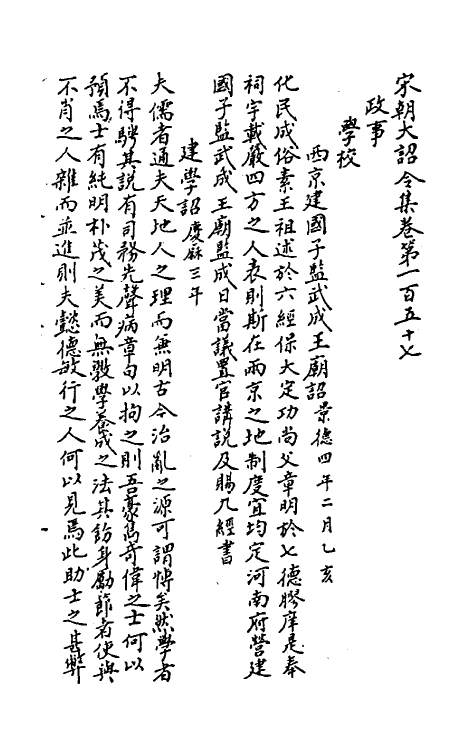 宋朝大詔令集卷第一百五十七
政事
學校
西京建國子監武成王廟詔景德四年二月乙亥
化民成俗素王祖述於六經保大定功尚父章明於七德膠庠是奉
祠宇載嚴四方之人表則斯在兩京之地制度宜均定河南府營建
國子監武成王廟監成日當議置官講説及賜九經書
建學詔慶厤三年
夫儒者通夫天地人之理而兼明古今治亂之源可謂博矣然學者
不得騁其説有司務先聲病章句以拘之則吾豪雋奇偉之士何以
預焉士有純明朴茂之美而無斆學養成之法其飭身勵節者使與
不肖之人雜而並進則夫懿德敏行之人何以見焉此助士之甚弊